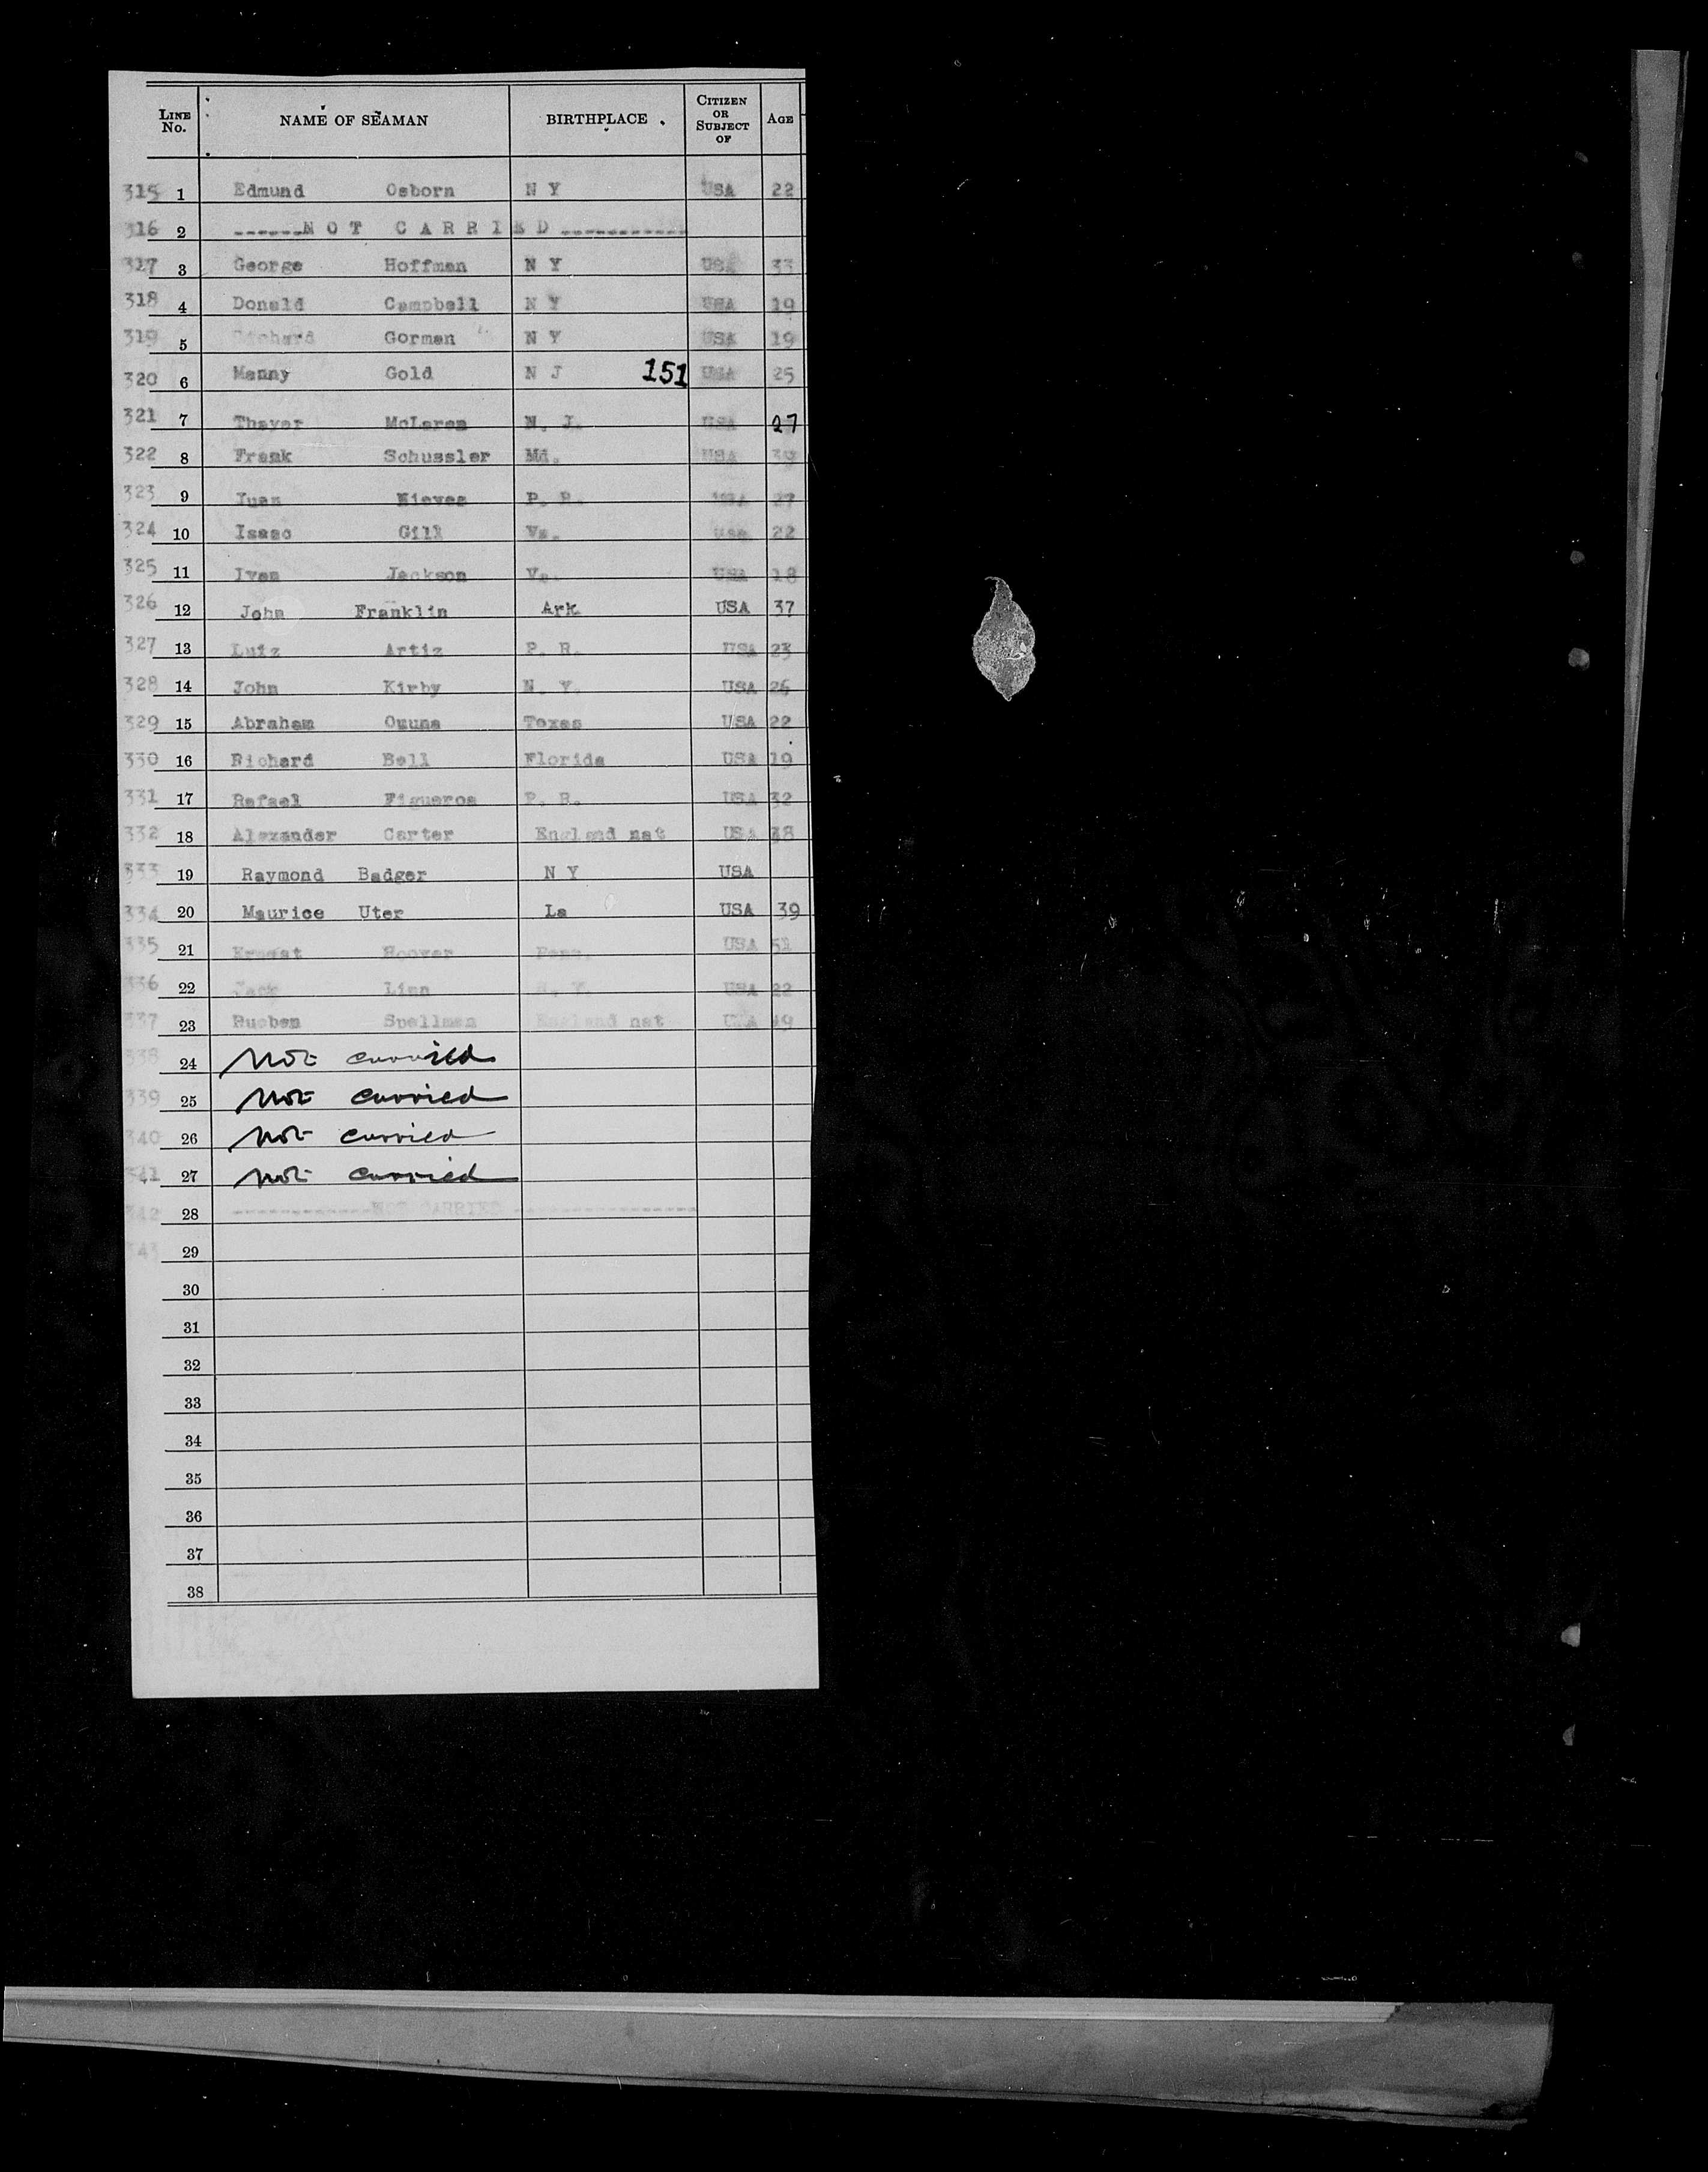 LINE No. NAME OF SEAMAN BIRTHPLACE CITIZEN OR SUBJECT OF AGE
315 1 Edmund Osborn N Y USA 22
316 2 ------NOT CARRIED-----------
317 3 George Hoffman N Y USA 33
318 4 Donald Campbell N Y USA 19
319 5 Richard Gorman N Y USA 19
320 6 Manny Gold N J 151 USA 25
321 7 Thayer McLaren N. J. USA 27
322 8 Frank Schussler Md. USA 39
323 9 Juan Nieves P. R. USA 27
324 10 Isaac Gill Va. USA 22
325 11 Ivan Jackson Va. USA 18
326 12 John Franklin Ark USA 37
327 13 Luiz Artiz P. R. USA 23
328 14 John Kirby N. Y. USA 26
329 15 Abraham Ozuna Texas USA 22
330 16 Richard Bell Florida USA 19
331 17 Rafael Figueroa P. R. USA 32
332 18 Alexander Carter England nat USA 38
333 19 Raymond Badger N Y USA
334 20 Maurice Uter La USA 39
335 21 Ernest Hoover Penn. USA 51
336 22 Jack Linn N. Y. USA 22
337 23 Rueben Spellman England nat USA 49
338 24 Not carried
339 25 Not carried
340 26 Not carried
341 27 Not carried
342 28 ------------NOT CARRIED----------------
343 29
30
31
32
33
34
35
36
37
38